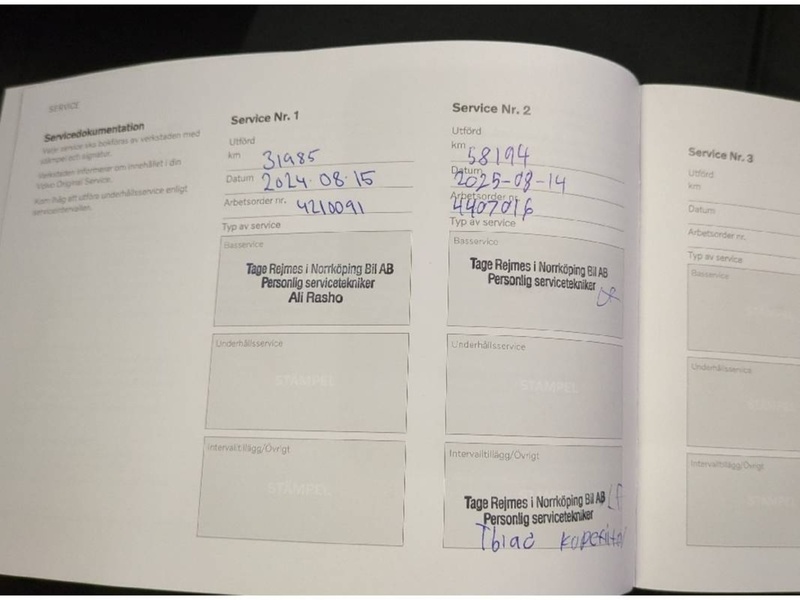 SERVICE
Servicedokumentation
Varje service ska bokföras av verkstaden med
stämpel och signatur.
Verkstaden informerar om innehållet i din
Volvo Original Service.
Kom ihåg att utföra underhållsservice enligt
serviceintervallen.
Service Nr. 1
Utförd
km 31985
Datum 2024-08-15
Arbetsorder nr. 4210091
Typ av service
Basservice
Tage Rejmes i Norrköping Bil AB
Personlig servicetekniker
Ali Rasho
Underhållsservice
STÄMPEL
Intervalltillägg/Övrigt
STÄMPEL
Service Nr. 2
Utförd
km 58194
Datum 2025-08-14
Arbetsorder nr. 4407016
Typ av service
Basservice
Tage Rejmes i Norrköping Bil AB
Personlig servicetekniker
Underhållsservice
STÄMPEL
Intervalltillägg/Övrigt
Tage Rejmes i Norrköping Bil AB
Personlig servicetekniker
Service Nr. 3
Utförd
km
Datum
Arbetsorder nr.
Typ av service
Basservice
Underhållsservice
Intervalltillägg/Övrigt